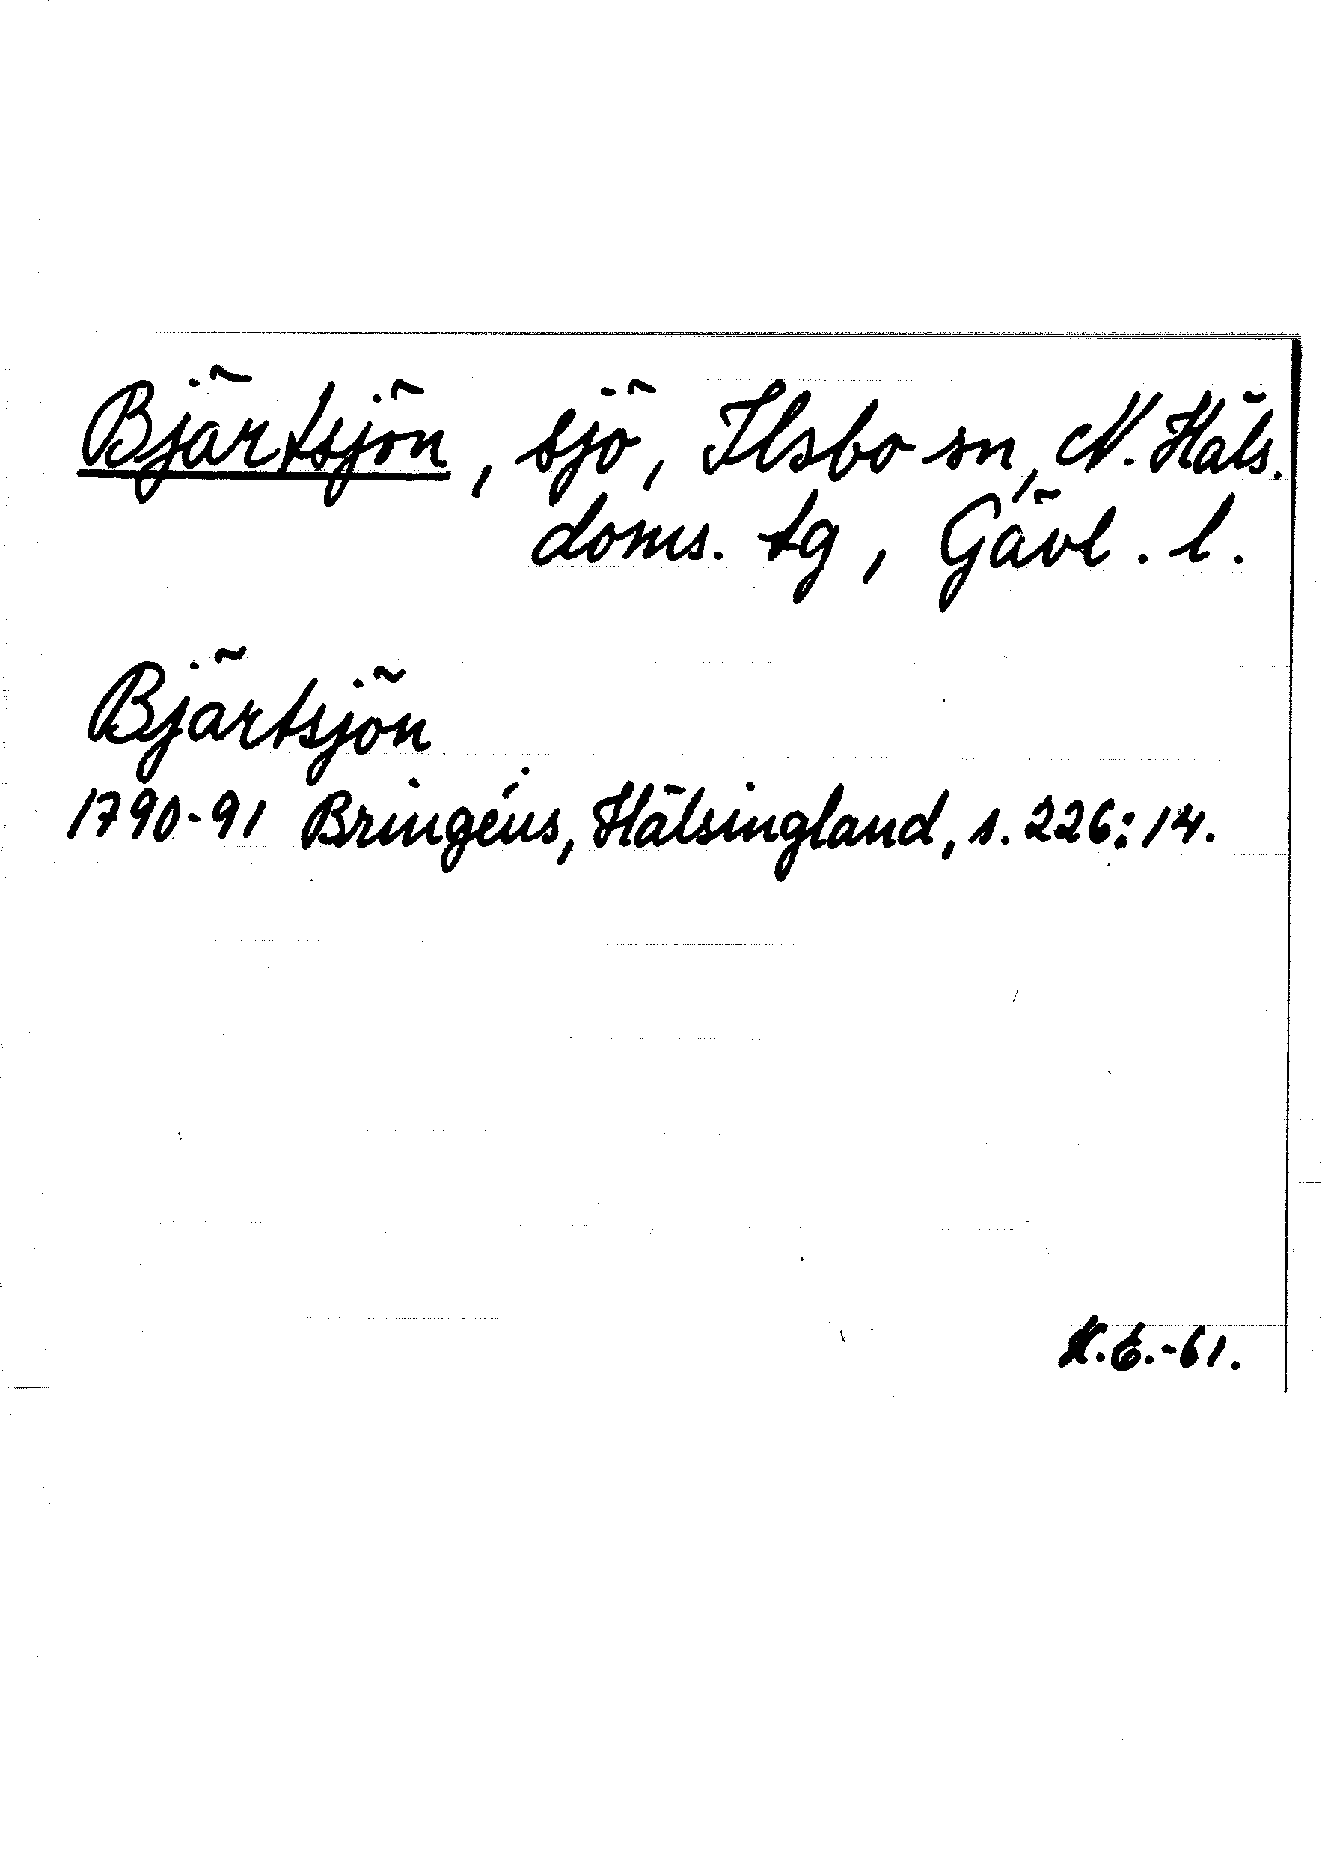 Bjärtsjön, sjö, Ilsbo sn, N. Häls.
doms. tg, Gävl. l.
Bjärtsjön
1790-91 Bringéus, Hälsingland, s. 226:14.
K.E.-61.